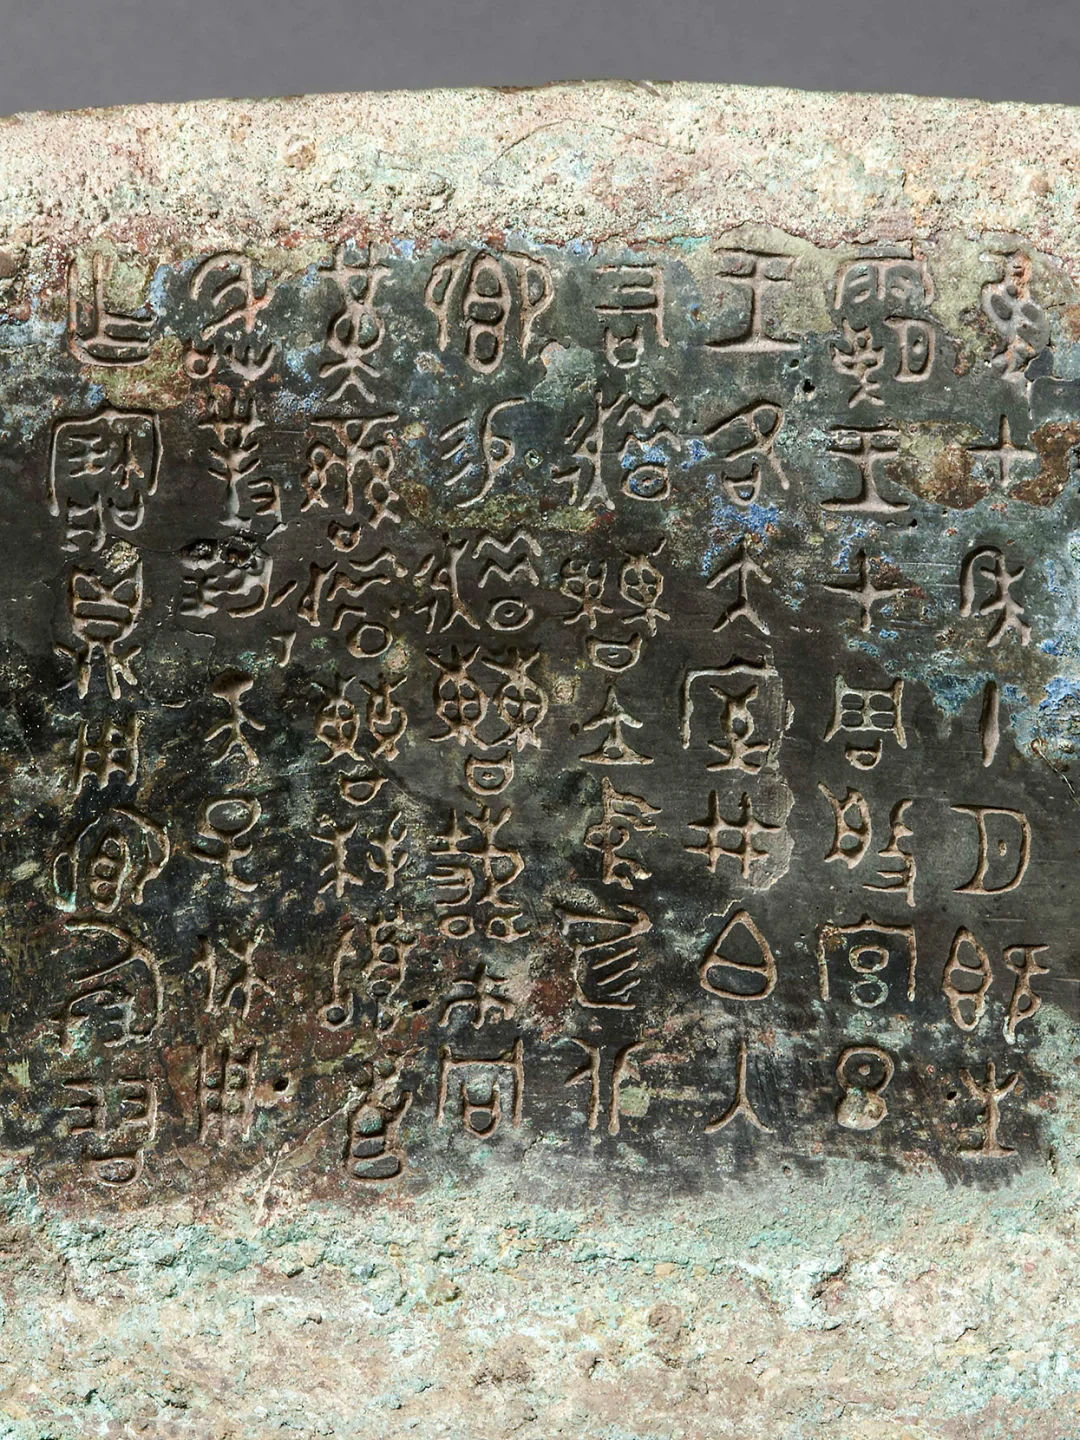 隹七年十月既生
霸王才周般宮旦
王各大室井白入
右趞曹立中廷北
卿易趞曹載巿冋
黃䜌趞曹拜𩒨首
敢對揚天子休用
乍寶鼎用卿倗友